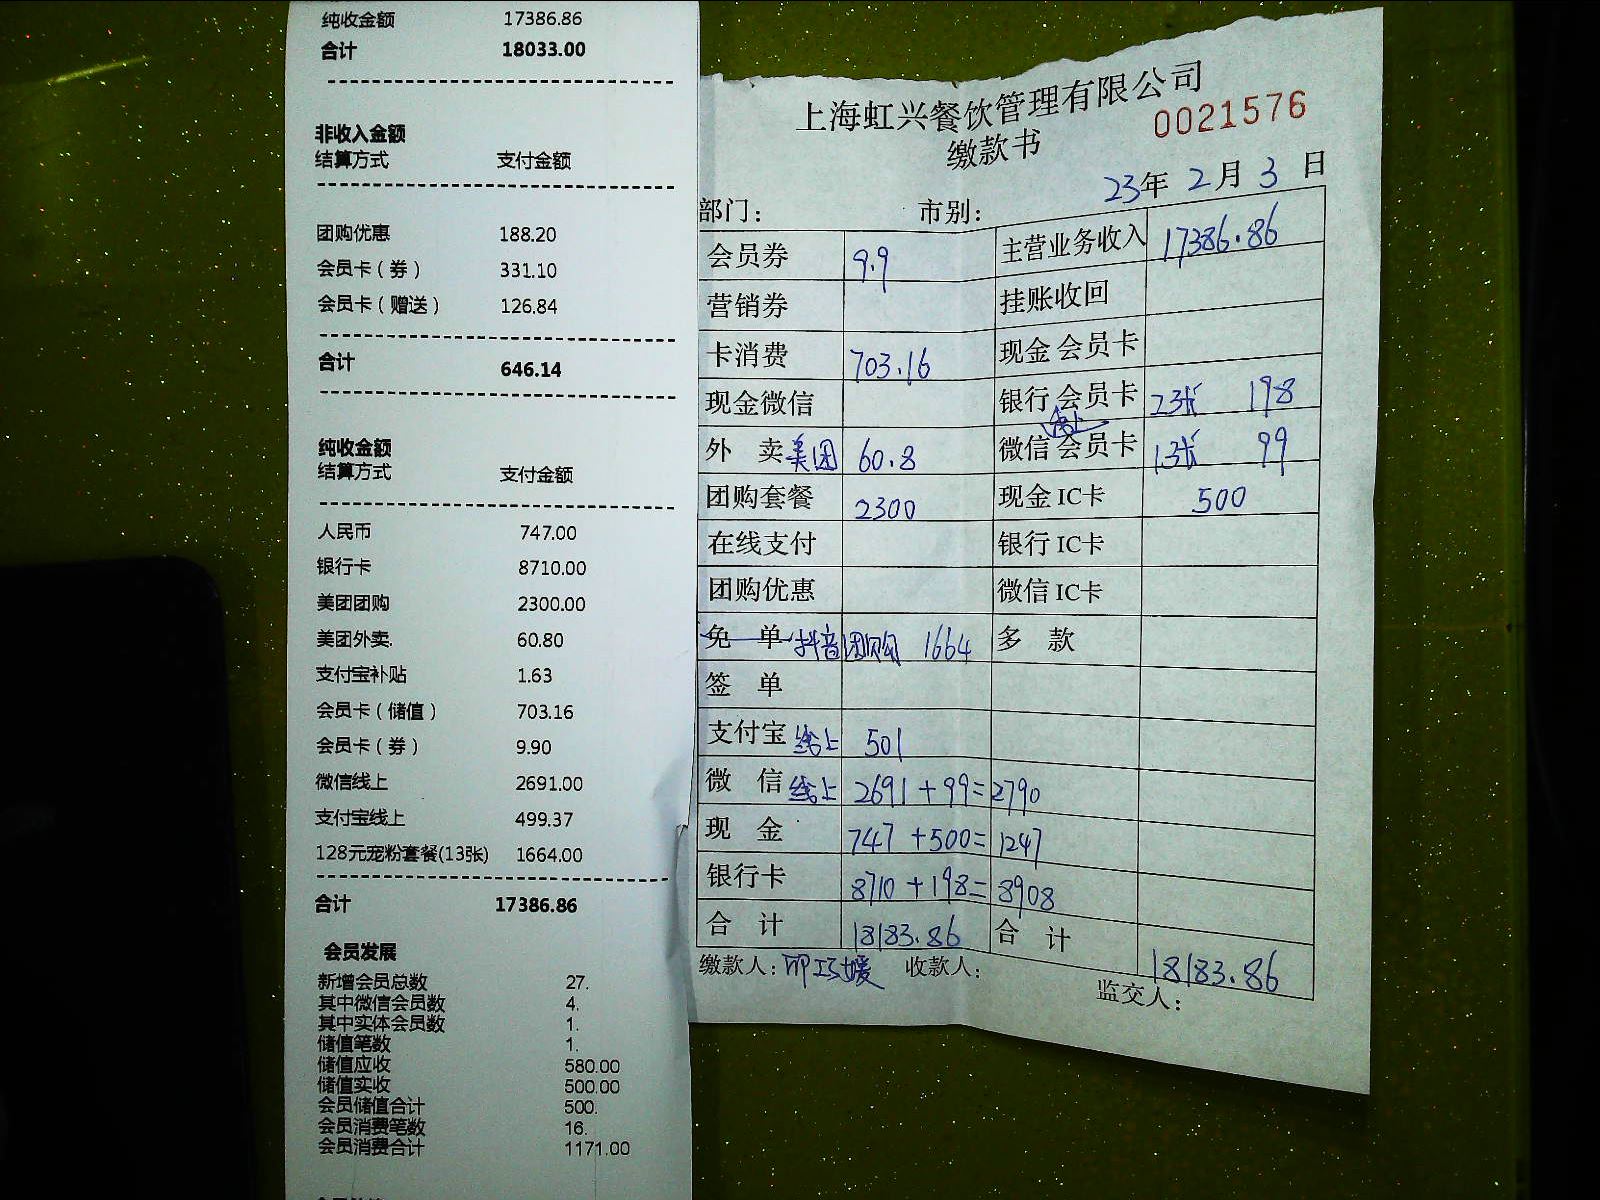 纯收金额 17386.86
合计 18033.00
非收入金额
结算方式 支付金额
团购优惠 188.20
会员卡（券） 331.10
会员卡（赠送） 126.84
合计 646.14
纯收金额
结算方式 支付金额
人民币 747.00
银行卡 8710.00
美团团购 2300.00
美团外卖. 60.80
支付宝补贴 1.63
会员卡（储值） 703.16
会员卡（券） 9.90
微信线上 2691.00
支付宝线上 499.37
128元宠粉套餐(13张) 1664.00
合计 17386.86
会员发展
新增会员总数 27.
其中微信会员数 4.
其中实体会员数 1.
储值笔数 1.
储值应收 580.00
储值实收 500.00
会员储值合计 500.
会员消费笔数 16.
会员消费合计 1171.00
上海虹兴餐饮管理有限公司
缴款书 0021576
23年 2月 3日
部门： 市别：
会员券 9.9 主营业务收入 17386.86
营销券 挂账收回
卡消费 703.16 现金 会员卡
现金微信 银行 会员卡 2张 198
外 卖 美团 60.8 微信 线上 会员卡 1张 99
团购套餐 2300 现金 IC卡 500
在线支付 银行 IC卡
团购优惠 微信 IC卡
免 单 抖音团购 1664 多 款
签 单
支付宝 线上 501
微 信 线上 2691+99=2790
现 金 747+500=1247
银行卡 8710+198=8908
合 计 18183.86 合 计 18183.86
缴款人： 收款人： 监交人：